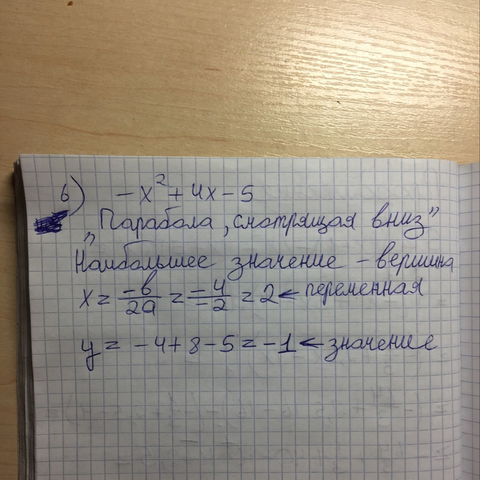 б) -x²+4x-5
"Парабола, смотрящая вниз"
Наибольшее значение - вершина
x = -b/2a = -4/-2 = 2 ← переменная
y = -4+8-5 = -1 ← значение